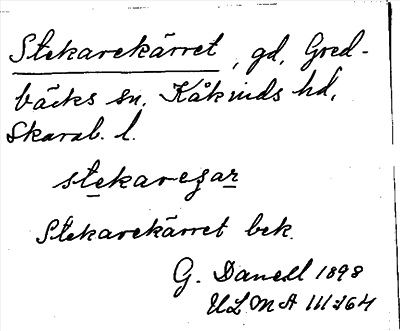 Stekarekärret, gd, Gred-
bäcks sn. Kåkinds hd,
Skarab. l.
stekaregar
Stekarekärret bek.
G. Danell 1898
ULMA 111:164